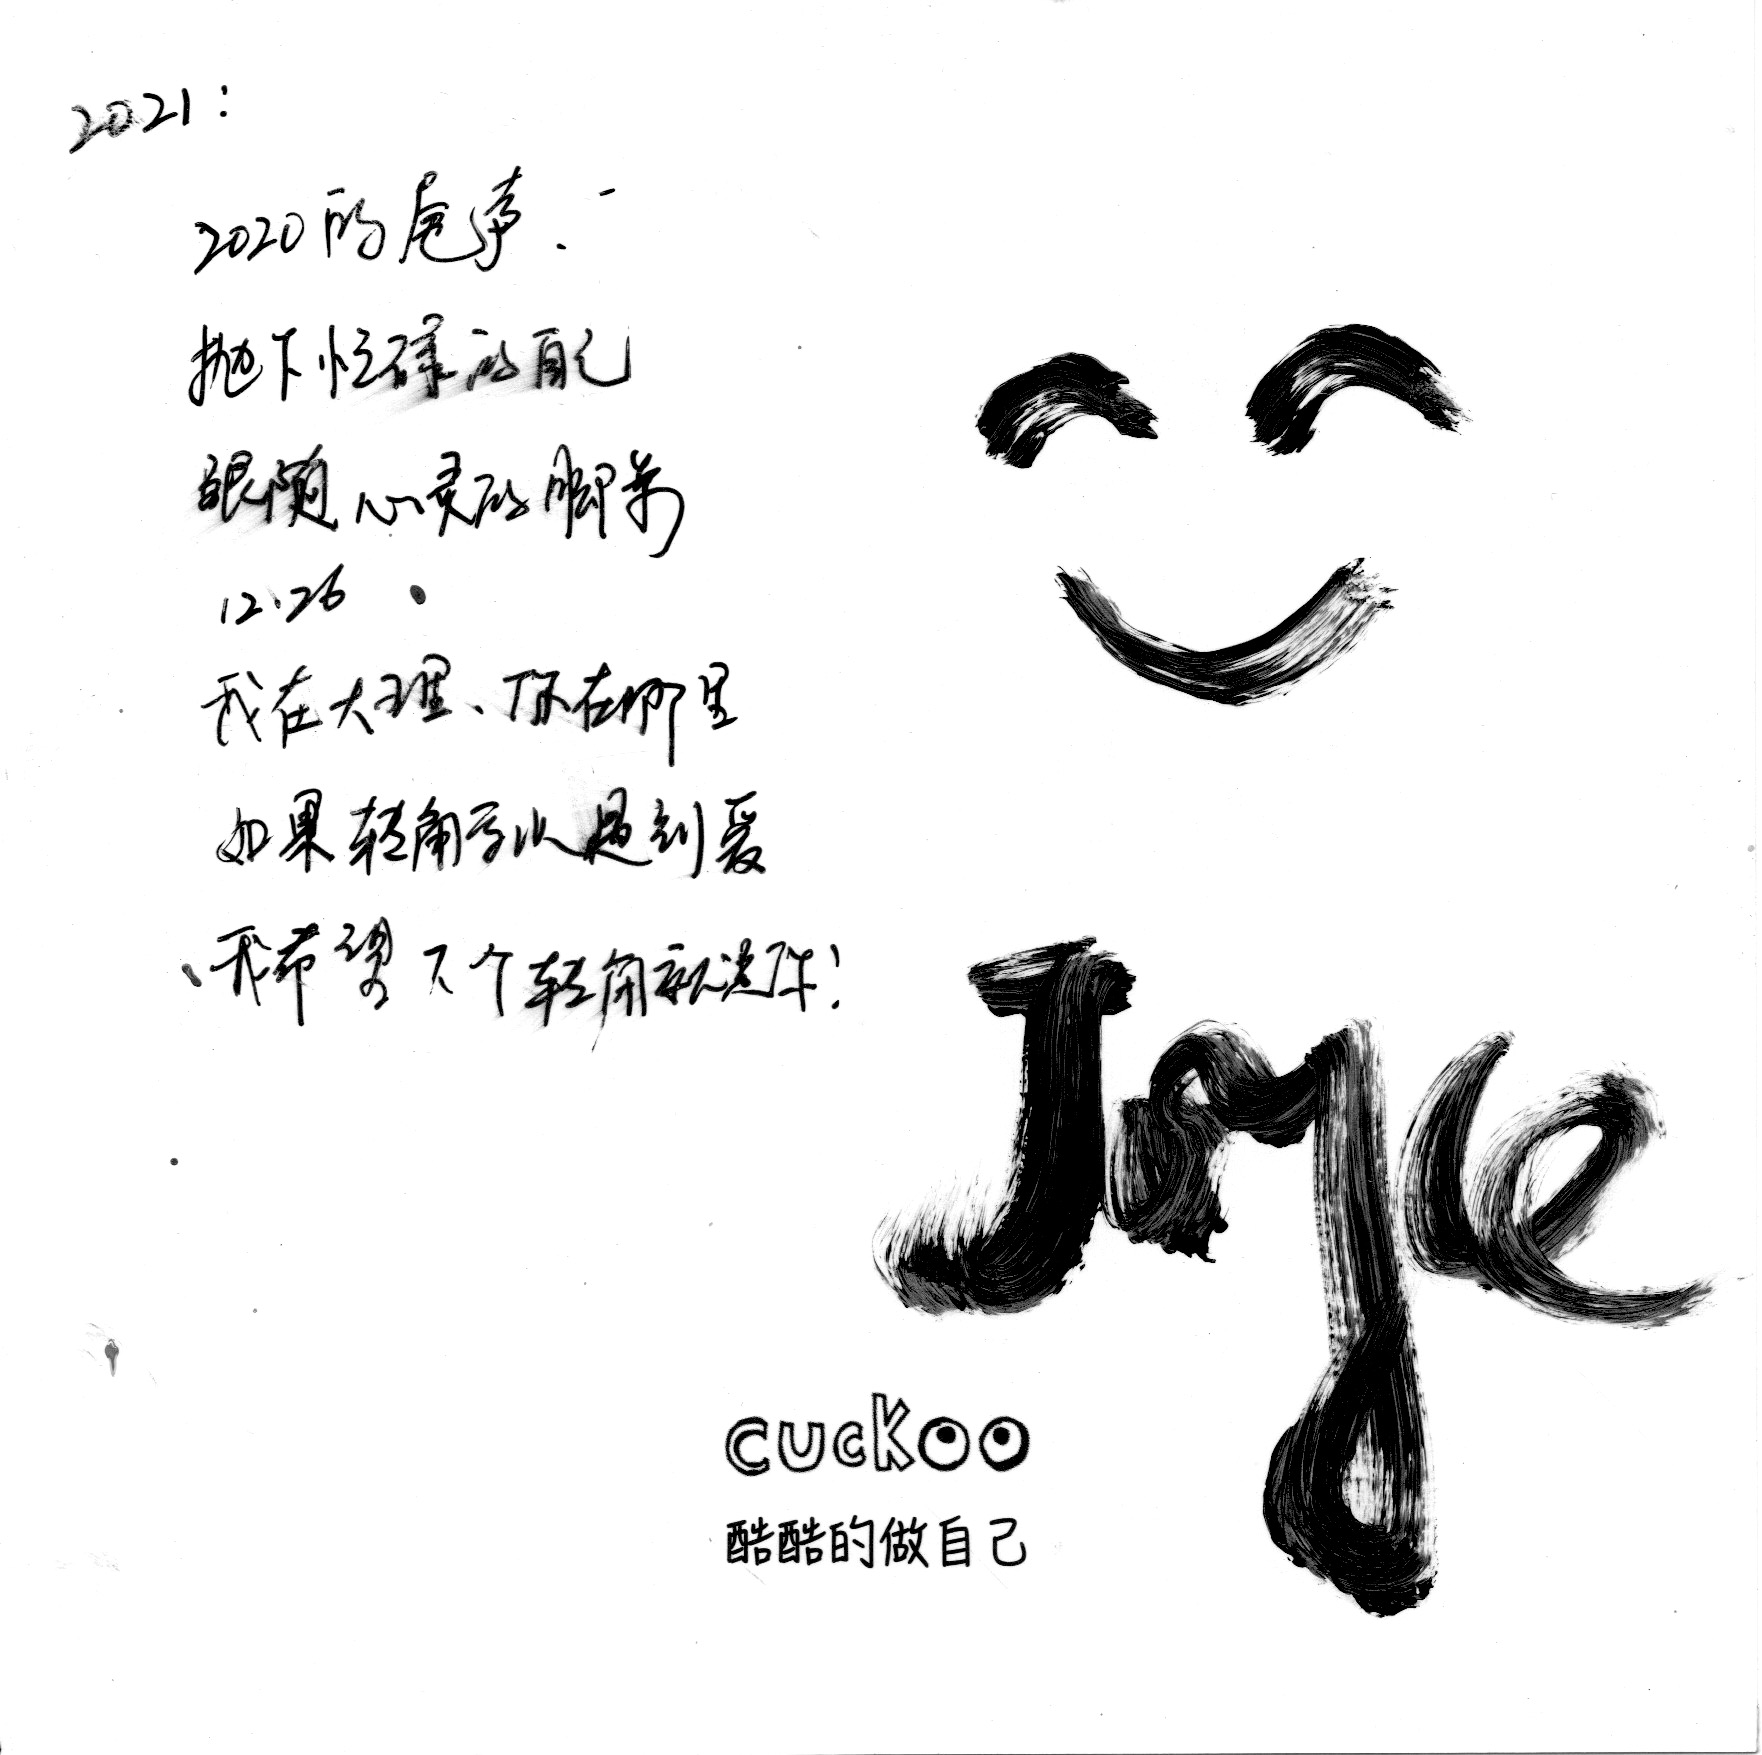 2021：
2020的尾声、
抛下忙碌的自己
跟随心灵的脚步
12.26
我在大理、你在哪里
如果转角可以遇到爱
我希望下个转角就遇你！
Joyce
cuckoo
酷酷的做自己